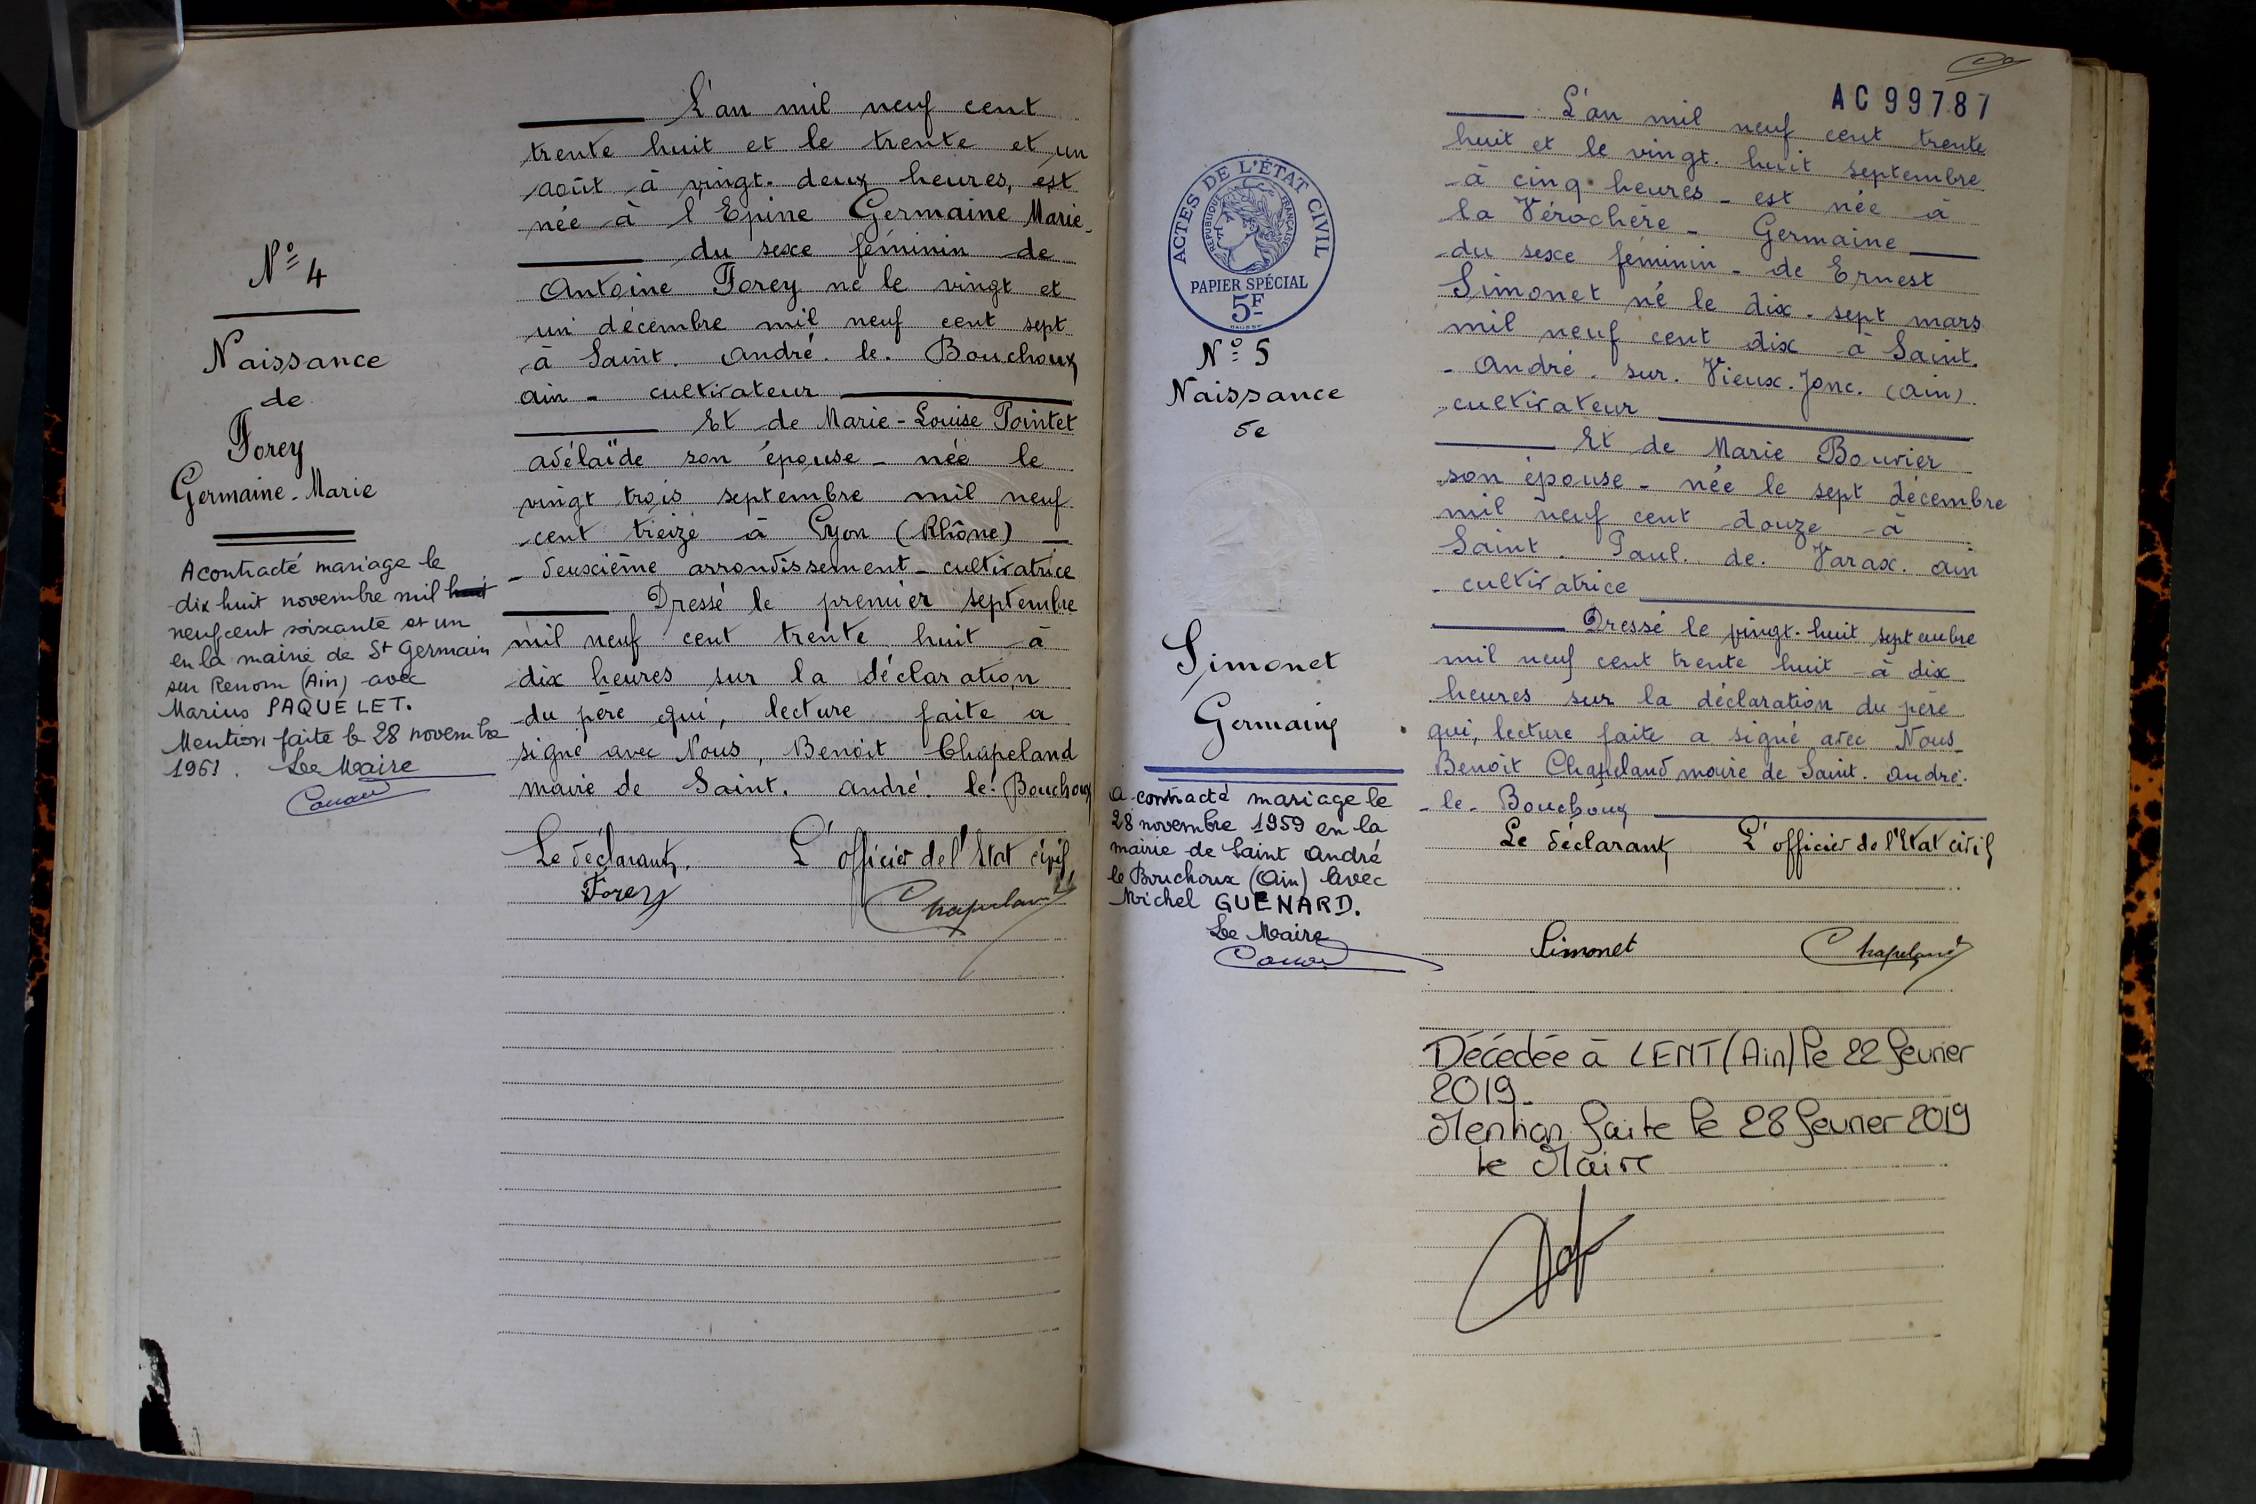 N° 4
Naissance
de
Forey
Germaine-Marie
A contracté mariage le
dix huit novembre mil huit
neuf cent soixante et un
en la mairie de St Germain
sur Renom (Ain) avec
Marius PAQUELET.
Mention faite le 28 novembre
1961. Le Maire
L'an mil neuf cent
trente huit et le trente et un
août à vingt-deux heures, est
née à l'Epine Germaine Marie
du sexe féminin de
Antoine Forey né le vingt et
un décembre mil neuf cent sept
à Saint-André-le-Bouchoux
ain - cultivateur
Et de Marie-Louise Pointet
adélaïde son épouse - née le
vingt trois septembre mil neuf
cent treize à Lyon (Rhône) -
- deuxième arrondissement - cultivatrice
Dressé le premier septembre
mil neuf cent trente huit à
dix heures sur la déclaration
du père qui, lecture faite a
signé avec Nous, Benoit Chapeland
maire de Saint-André-le-Bouchoux
Le déclarant, L'officier de l'Etat civil,
Forey Chapeland
AC 99787
ACTES DE L'ÉTAT CIVIL
RÉPUBLIQUE FRANÇAISE
PAPIER SPÉCIAL
5F
N° 5
Naissance
de
Simonet
Germaine
a contracté mariage le
28 novembre 1959 en la
mairie de Saint André
le Bouchoux (Ain) avec
Michel GUENARD.
Le Maire
L'an mil neuf cent trente
huit et le vingt-huit septembre
à cinq heures - est née à
la Vérachère - Germaine
du sexe féminin - de Ernest
Simonet né le dix-sept mars
mil neuf cent dix à Saint-
-André-sur-Vieux-Jonc (ain)
cultivateur
Et de Marie Bouvier
son épouse - née le sept décembre
mil neuf cent douze à
Saint-Paul-de-Varax-ain
- cultivatrice
Dressé le vingt-huit septembre
mil neuf cent trente huit à dix
heures sur la déclaration du père
qui, lecture faite a signé avec Nous
Benoit Chapeland maire de Saint-André-
-le-Bouchoux
Le déclarant L'officier de l'Etat civil
Simonet Chapeland
Décédée à LENT (Ain) le 22 fevrier
2019.
Mention faite le 28 fevrier 2019
le Maire